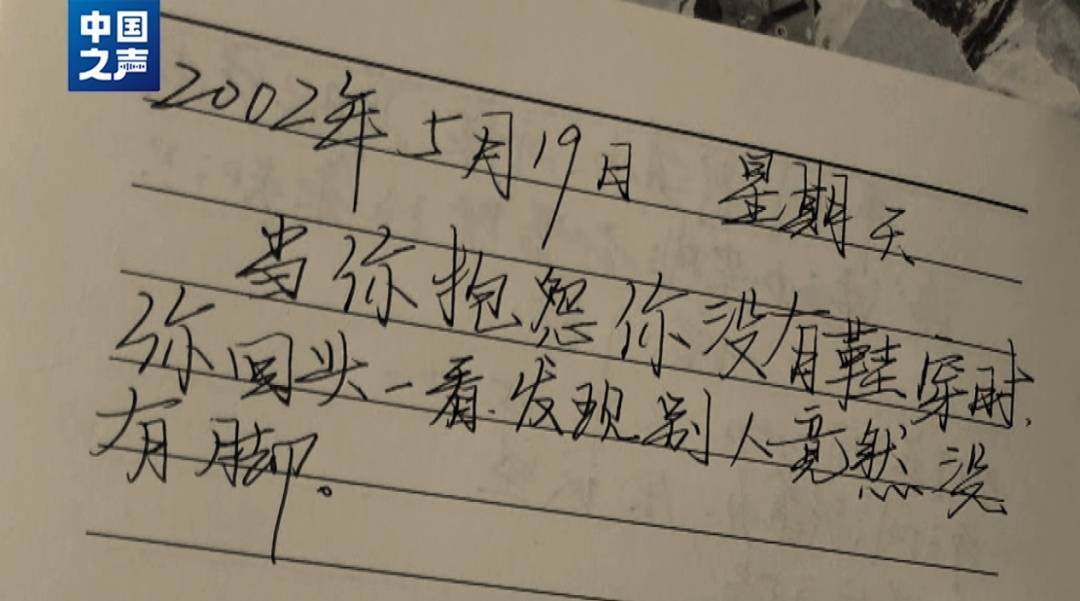 中国
之声
2002年5月19日 星期天
当你抱怨你没有鞋穿时,
你回头一看.发现别人竟然没
有脚。